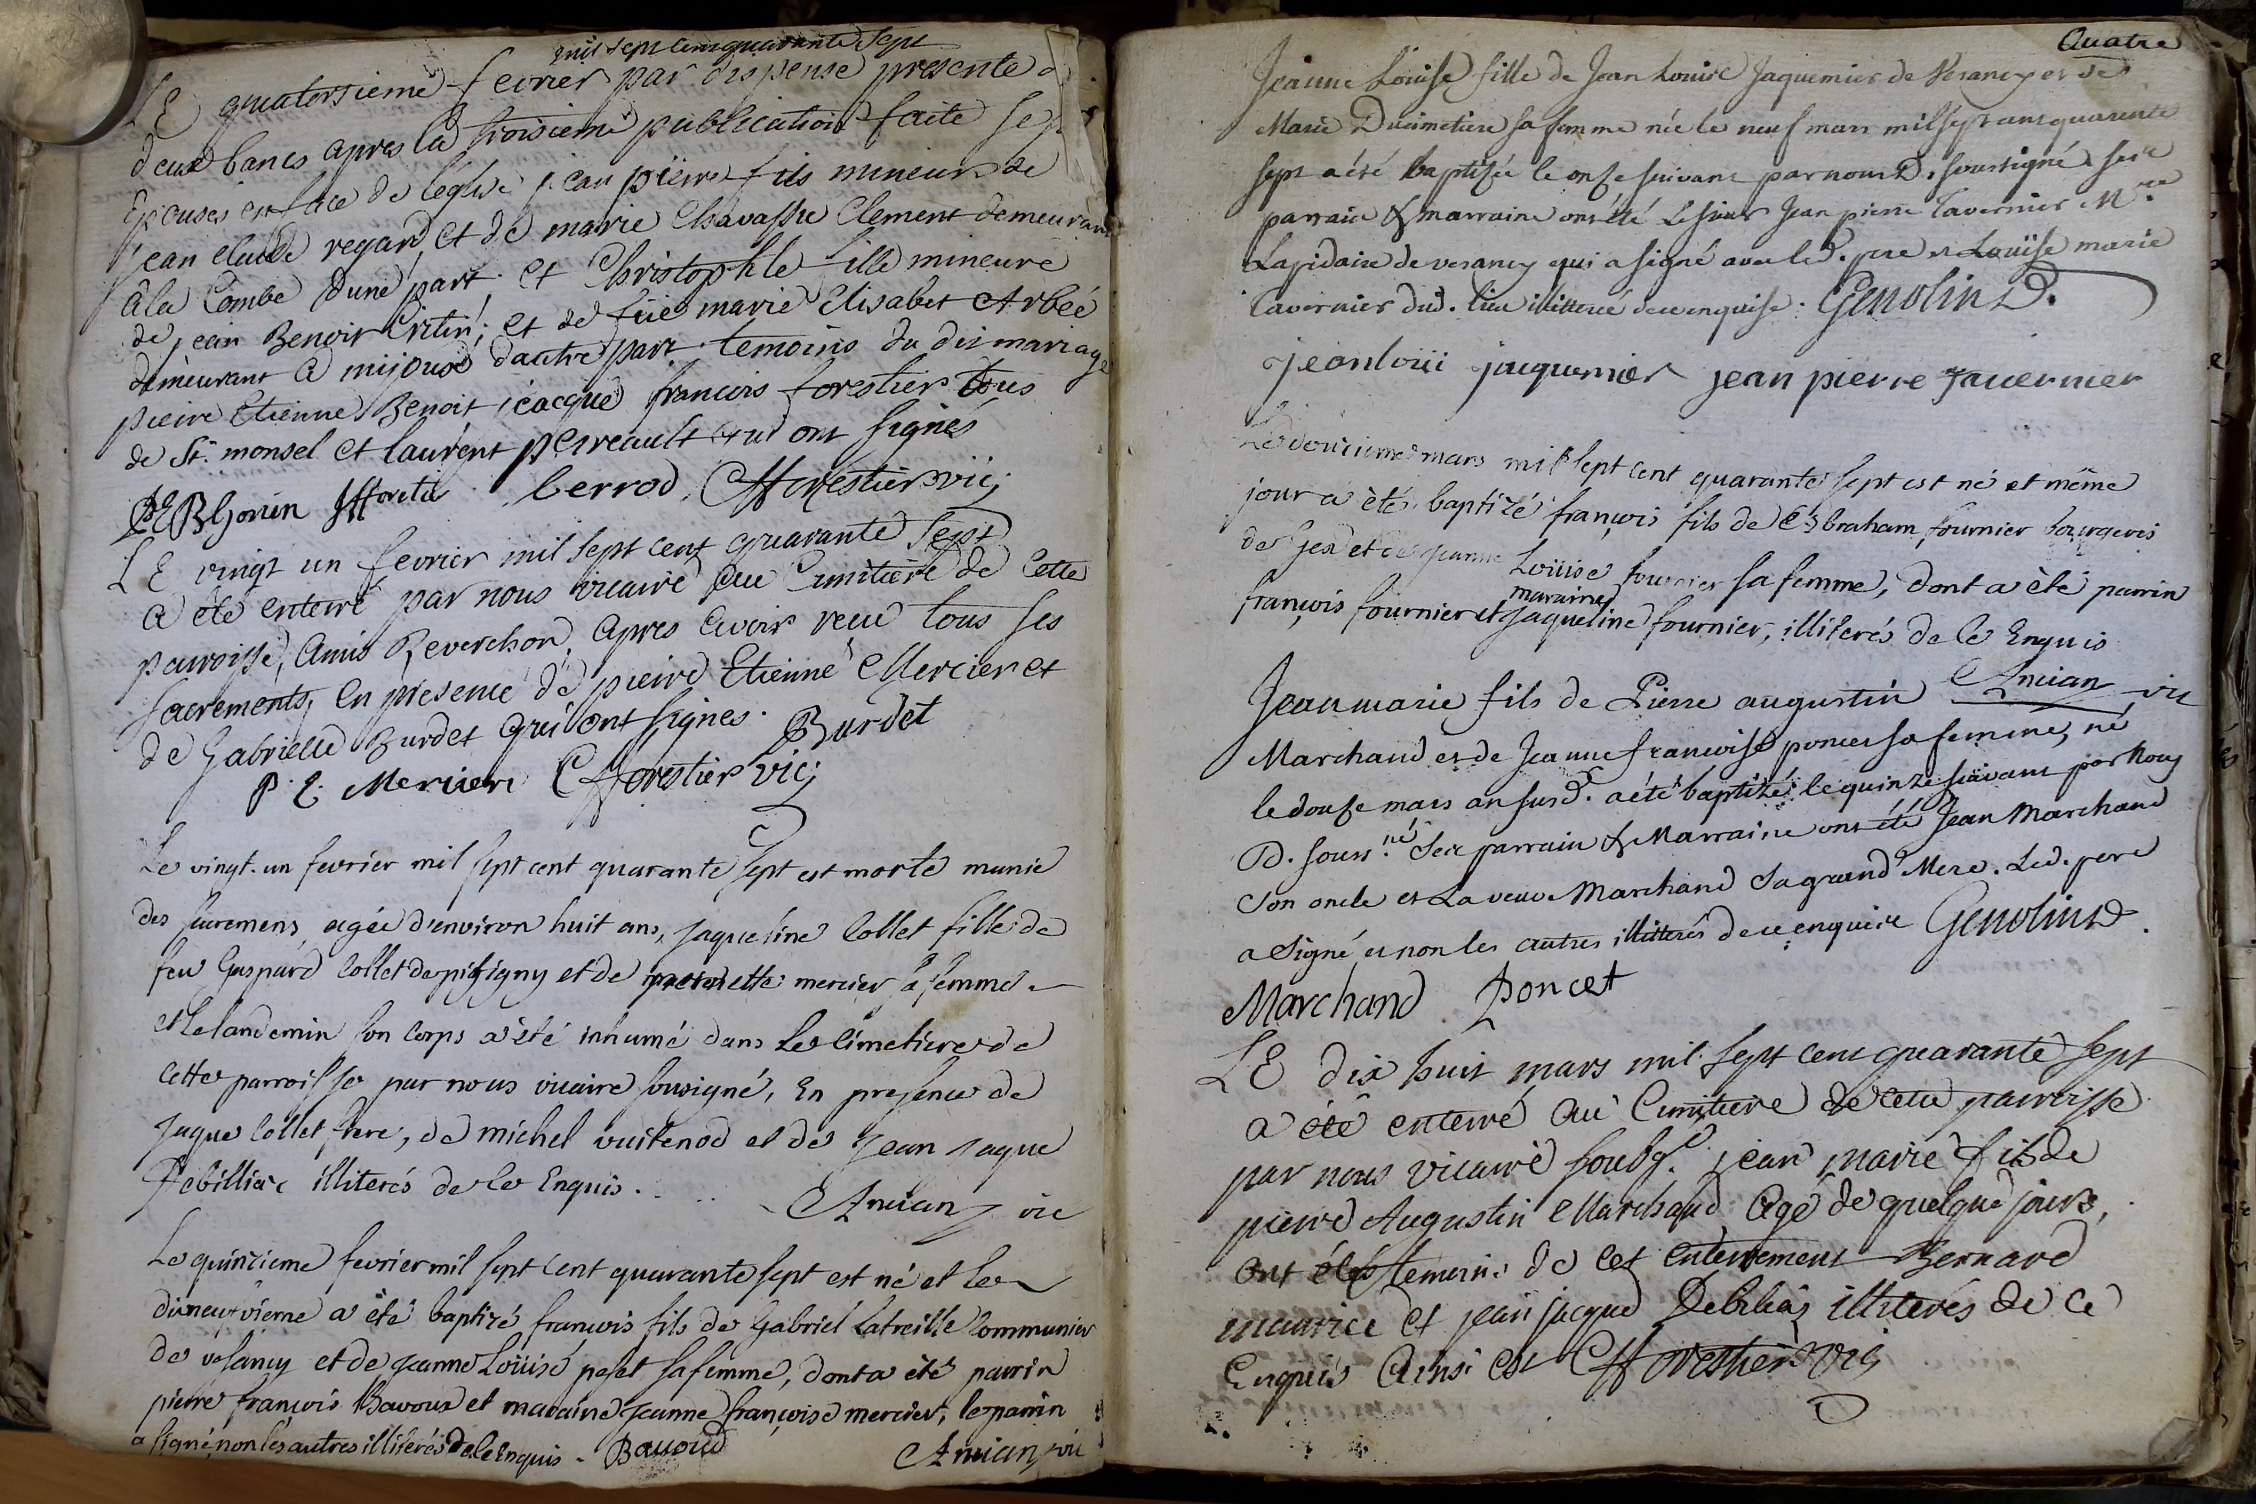 mil sept cent quarante sept
LE quatorsieme fevrier par dispense presente
deux bancs apres la troisieme publication faite
Epousés en face de léglise jean pierre fils mineur de
jean claude regard, et de marie Chavassu Clement demeurant
à la Combe dune part. et Christophle fille mineure
de jean Benoit Critin; et de füe marie Elisabet Arbéé
demeurant a mijoux d'autre part. temoins du dit mariage
pieire Etienne Benoit jéacque francois forestier tous
de St. monsel et laurent perreault qui ont signés
PE B Gonin JfForetie berrod CfForestier vic;
LE vingt un fevrier mil sept cent quarante sept
a eté enterré par nous vicaire au Cimitiere de Cette
paroisse, Amis Reverchon, apres avoir recu tous ses
sacrements, En presence de pieire Etienne Mercier et
de Gabrielle Burdet qui ont signes. Burdet
P. E. Mercier CfForestier vic;
Le vingt-un fevrier mil sept cent quarante sept est morte munie
des sacremens, agée d'environ huit ans, Jaqueline Collet fille de
feu Gaspard Collet de pitigny et de pernette mercier sa femme
et le landemin son corps a été inhumé dans le cimetiere de
cette parroisse par nous vicaire sousigné, En presence de
Jaque Collet frere, de michel vuitenod et de Jean Jaque
Debilliae illiterés de ce Enquis.
Anian vic
Le quinzieme fevrier mil sept cent quarante sept est né et le
dixneufvieme a été baptizé francois fils de Gabriel Latreille Communier
de vesancy et de Jeanne Loüise paset sa femme, dont a été parrin
pierre françois Bavoux et maraine Jeanne françoise mercier, le parrin
a signé non les autres illiterés de ce Enquis - Bauoud
Anian vic
Quatre
Jeanne Loüise fille de Jean Louise Jaquemier de Vesancy et de
Marie Ducimetiere sa femme née le neuf mars mil sept cent quarante
sept a été baptisée le onse suivant par nous D. soussigné Ses
parrain & marraine ont été Le sieur Jean pierre Tavernier Mtre
Lapidaire de vesancy qui a signé avec led. pere et Loüise marie
Tavernier dud. lieu illitterée de ce enquise. Genolin D.
jeanlouii jaquemier jean pierre Tauernier
Le douzieme mars mil sept cent quarante sept est né et même
jour a été baptizé françois fils de Abraham fournier bourgeois
de Gex et de Jeanne Loüise fournier sa femme, dont a été parrin
françois fournier et maraine Jaqueline fournier, illiterés de ce Enquis
Anian vic
Jean marie fils de Pierre augustin
Marchand et de Jeanne francoise poncet sa femme, né
le douse mars an susd. a été baptisé le quinze suivant par Nous
D. souss.né Ses parrain & Marraine ont été Jean Marchand
Son oncle et La veuve Marchand Sa grand Mere. Led. pere
a Signé et non les autres illitterés de ce enquise Genolin D.
Marchand Poncet
LE dix huit mars mil sept cent quarante sept
a été enterré au Cimitiere de cette paroisse
par nous vicaire soubg.é jean marie fils de
pierre Augustin Marchand, age de quelque jours,
ont étés temoins de cet enterrement Bernard
maurice et jean jacque Debiliàs illiterés de ce
Enquis Ainsi est CfForestier vic;